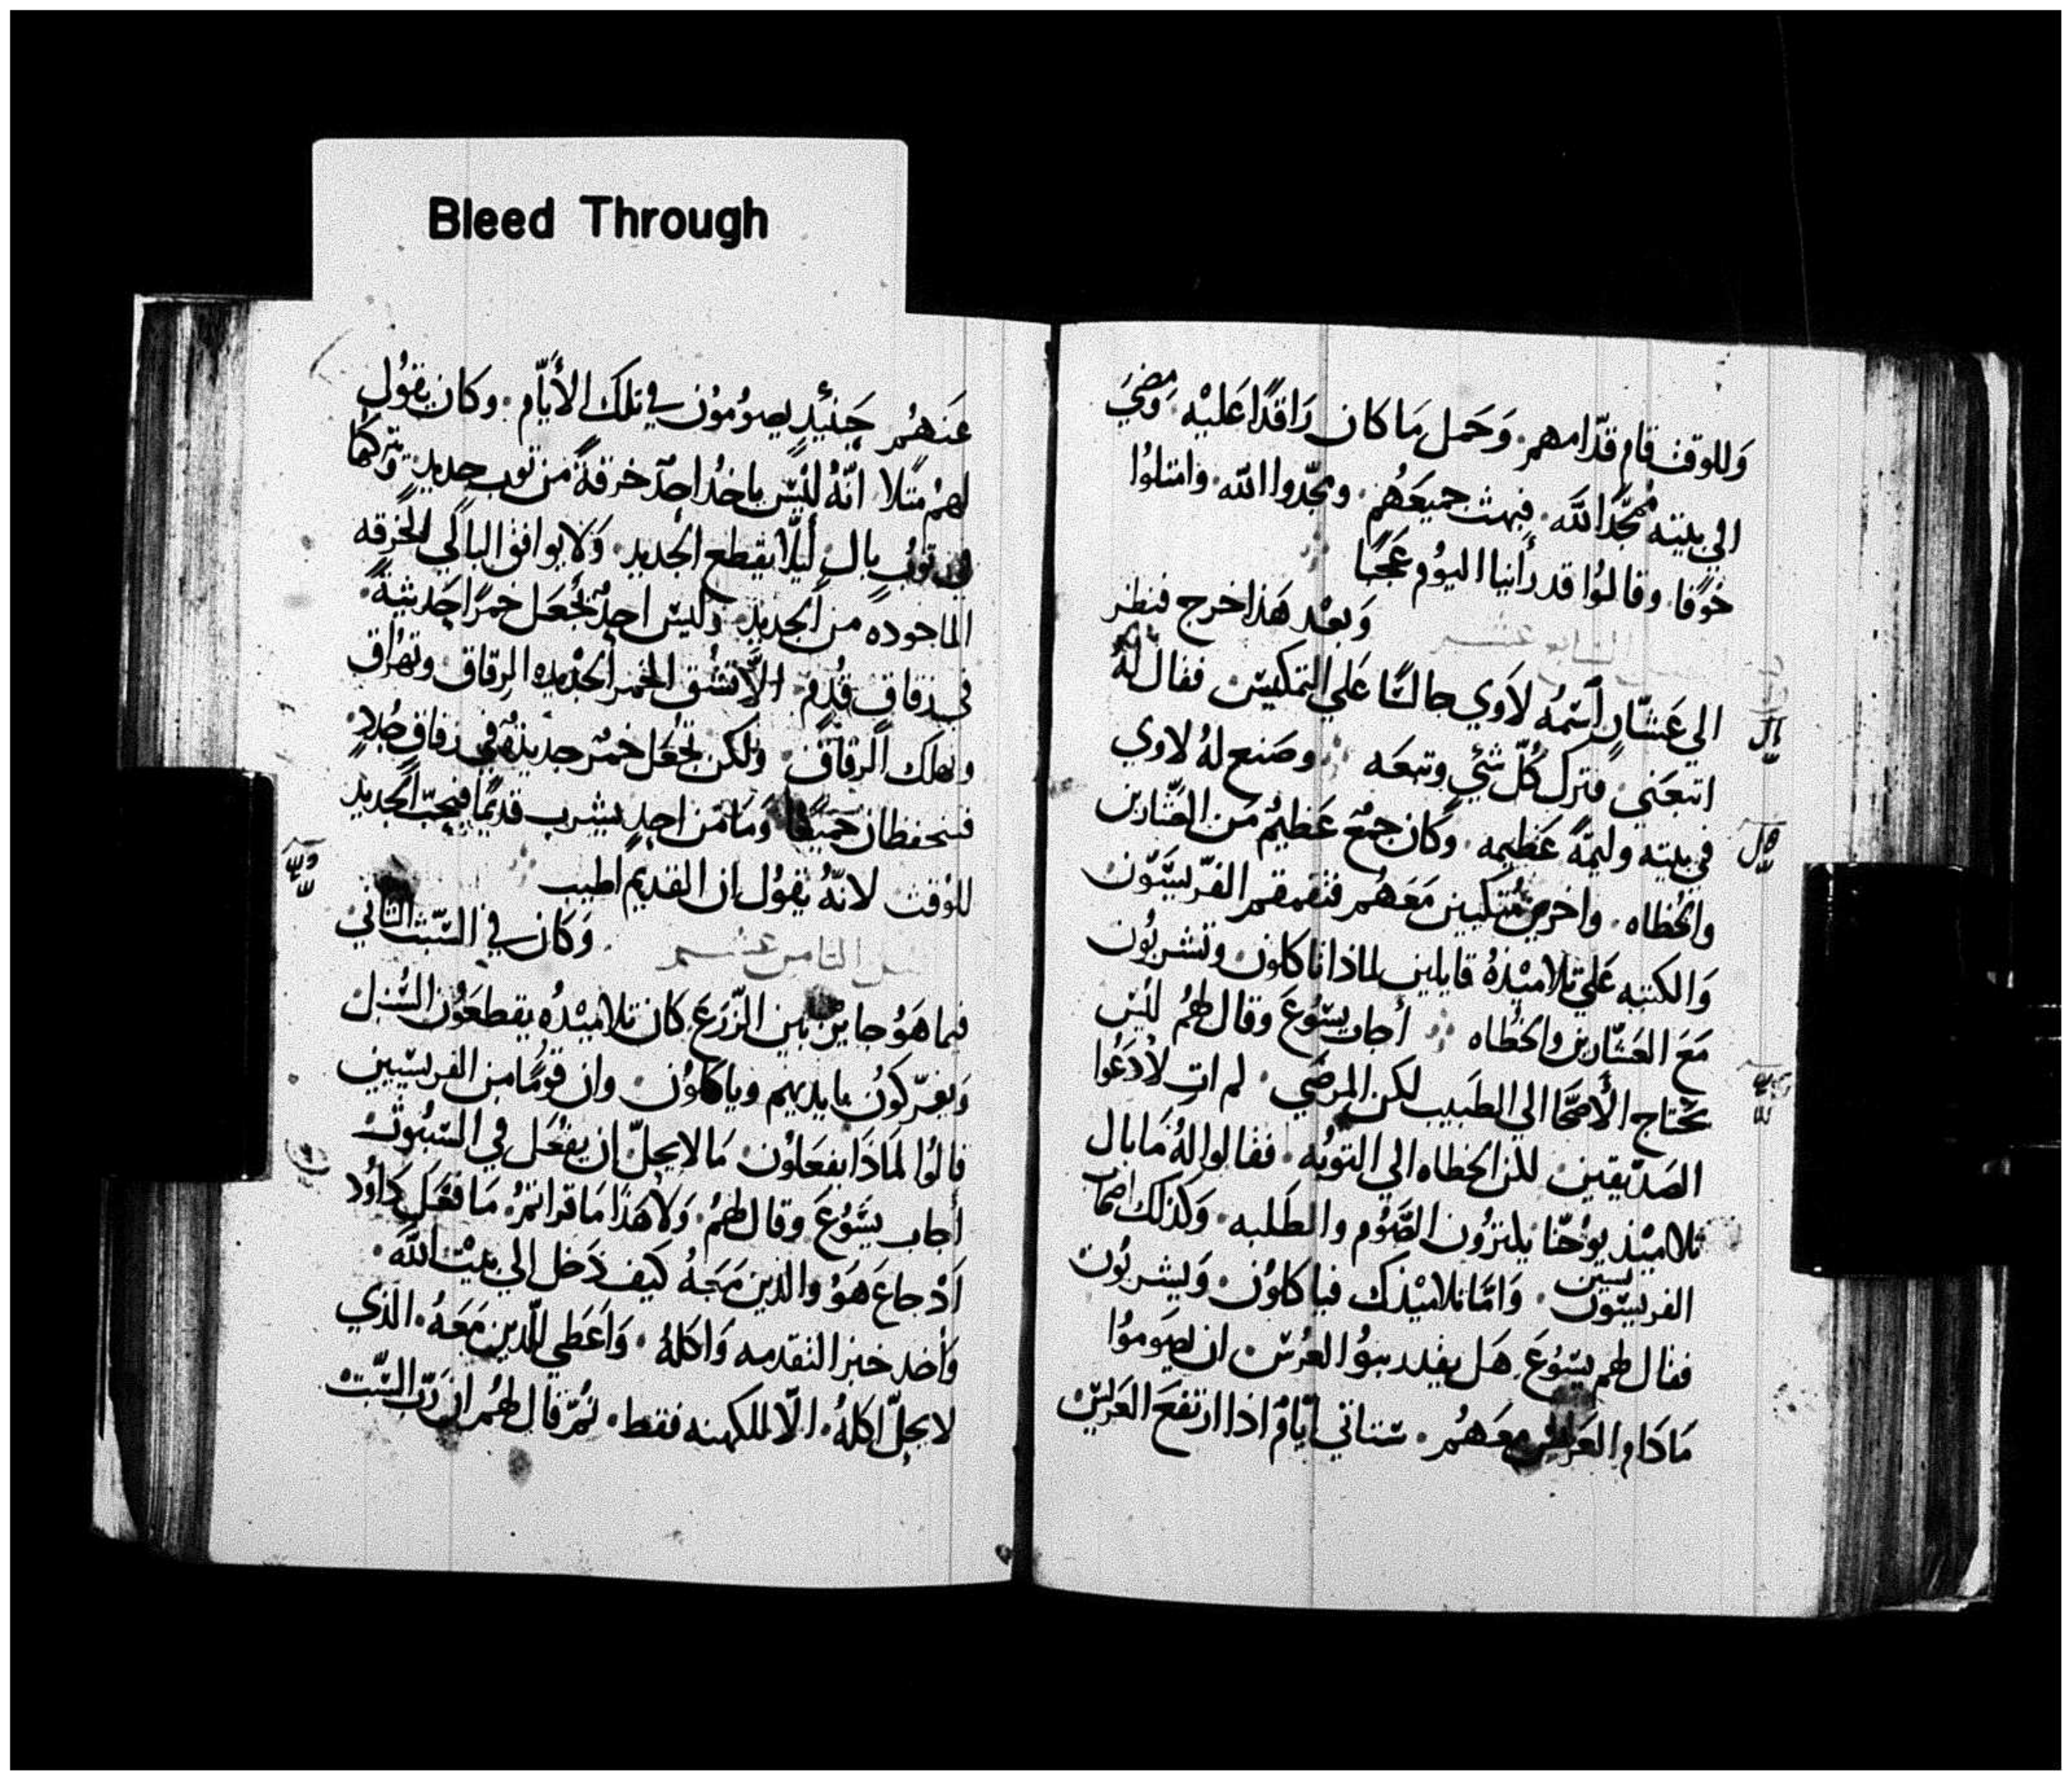 Bleed Through
وَللوقت قام قدّامهم. وَحَمل مَا كان رَاقدًا عَليْه. وَمضيَ
الي بيته مُمجّدًا للّه. فبهت جميعَهُم. ومجّدوا اللّه. وامتلوُا
خوًفا. وقالوُا قد رأينا اليوُم عَجَبًا
وَبعْد هَذا خرج فنظر
الي عَشّار اسْمهُ لاوَي جالسًا عَلي التمكيس. فقال لهُ
اتبعَني. فترك كُلّ شئيٍ وتبعَه. وصَنع لهُ لاوي
في بيته وليمَةً عَظيمه. وكان جمْع عَظيمٌ مَن العَشّارين
والخُطاه. واخرين مُتكيين مَعَهُم فتقمقم الفرّيسيّون
وَالكتبه عَلي تلاميْذهُ قايلين لماذا تاكلون وتشربُون
مَعَ العَشّارين والخُطاه. أجاب يسُوعَ وقال لهُم ليْس
تحتاج الأصَحّا الي الطَبيب لكن المرضَي. لم اتِ لأدعُوا
الصَدّيقين للن الخطاه الي التوبُه. فقالوا لهُ مَا بال
تلاميْذ يوُحَنّا يلتزوُن الصَّوم والطَلبه. وَكذلك اصحاب
الفريسيّون يسين. وَامّا تلاميْذك فياكلوُن. وَيشربوُن
فقال لهم يسُوعَ. هَل يقدر بنوُا العرُس ان يصَوموُا
مَا دَام العَريس معَهُم. ستاتي ايّامٌ اذا ارتفعَ العَريس
عَنهُم حِنئيدٍ يصوُموُن في تلك الأيّام. وكان يقوُل
لهمُ مَتلا. انّهُ ليْس ياخدُ احدٌ خرقةً من توبٍ جديد. وَيتركها
في توُبٍ بالٍ ليَلّا يقطع الجديد. وَلا يوافق البالي الخرقه
الماخوده من الجَديد. وَليس احدٌ يجعَل خمرًا جَديثةً
في زقاقٍ قدُمٍ. الّا تشُق الخمر الجديده الزقاق. وتهراق
وتهلك الزقاق. ولكن تجعَل خمرٌ جديدهٌ في زقاقٍ جُددٍ
فيتحفظان جَميعًا. وَمَا مَن احدٍ يشرب قديمًا فيحبّ الجَديد
للوُقت لانّهُ يقوُل ان القديم اطيب
الثامن عشر
وَكان في السّبت الثاني
فيما هَوُ جايز بَين الزّرَع كان تلاميْدُه يقطعَوُن السُنبل
وَيفرّكوُن بايديهم وياكلوُن. وان قوُمًا من الفريسيين
قالوُا لمَاذَا يفعَلوُن مَا لا يحلّ ان يفُعَل في السّبوُت
أجاب يسَوُعَ وقال لهُم. وَلا هَذا مَا قراتمُ. مَا فعَل دَاوُد
اَدْ جاعَ هَوُ والذين مَعَهُ كيف دَخل الي بيْت اللّه.
وَأخد خبز التقدمه وَاكلهُ. وَاعَطي للّدين مَعَهُ. الذي
لا يحلّ اكلهُ. الّا للكهنه فقط. تُمّ قال لهُم ان رَبّ السّبت